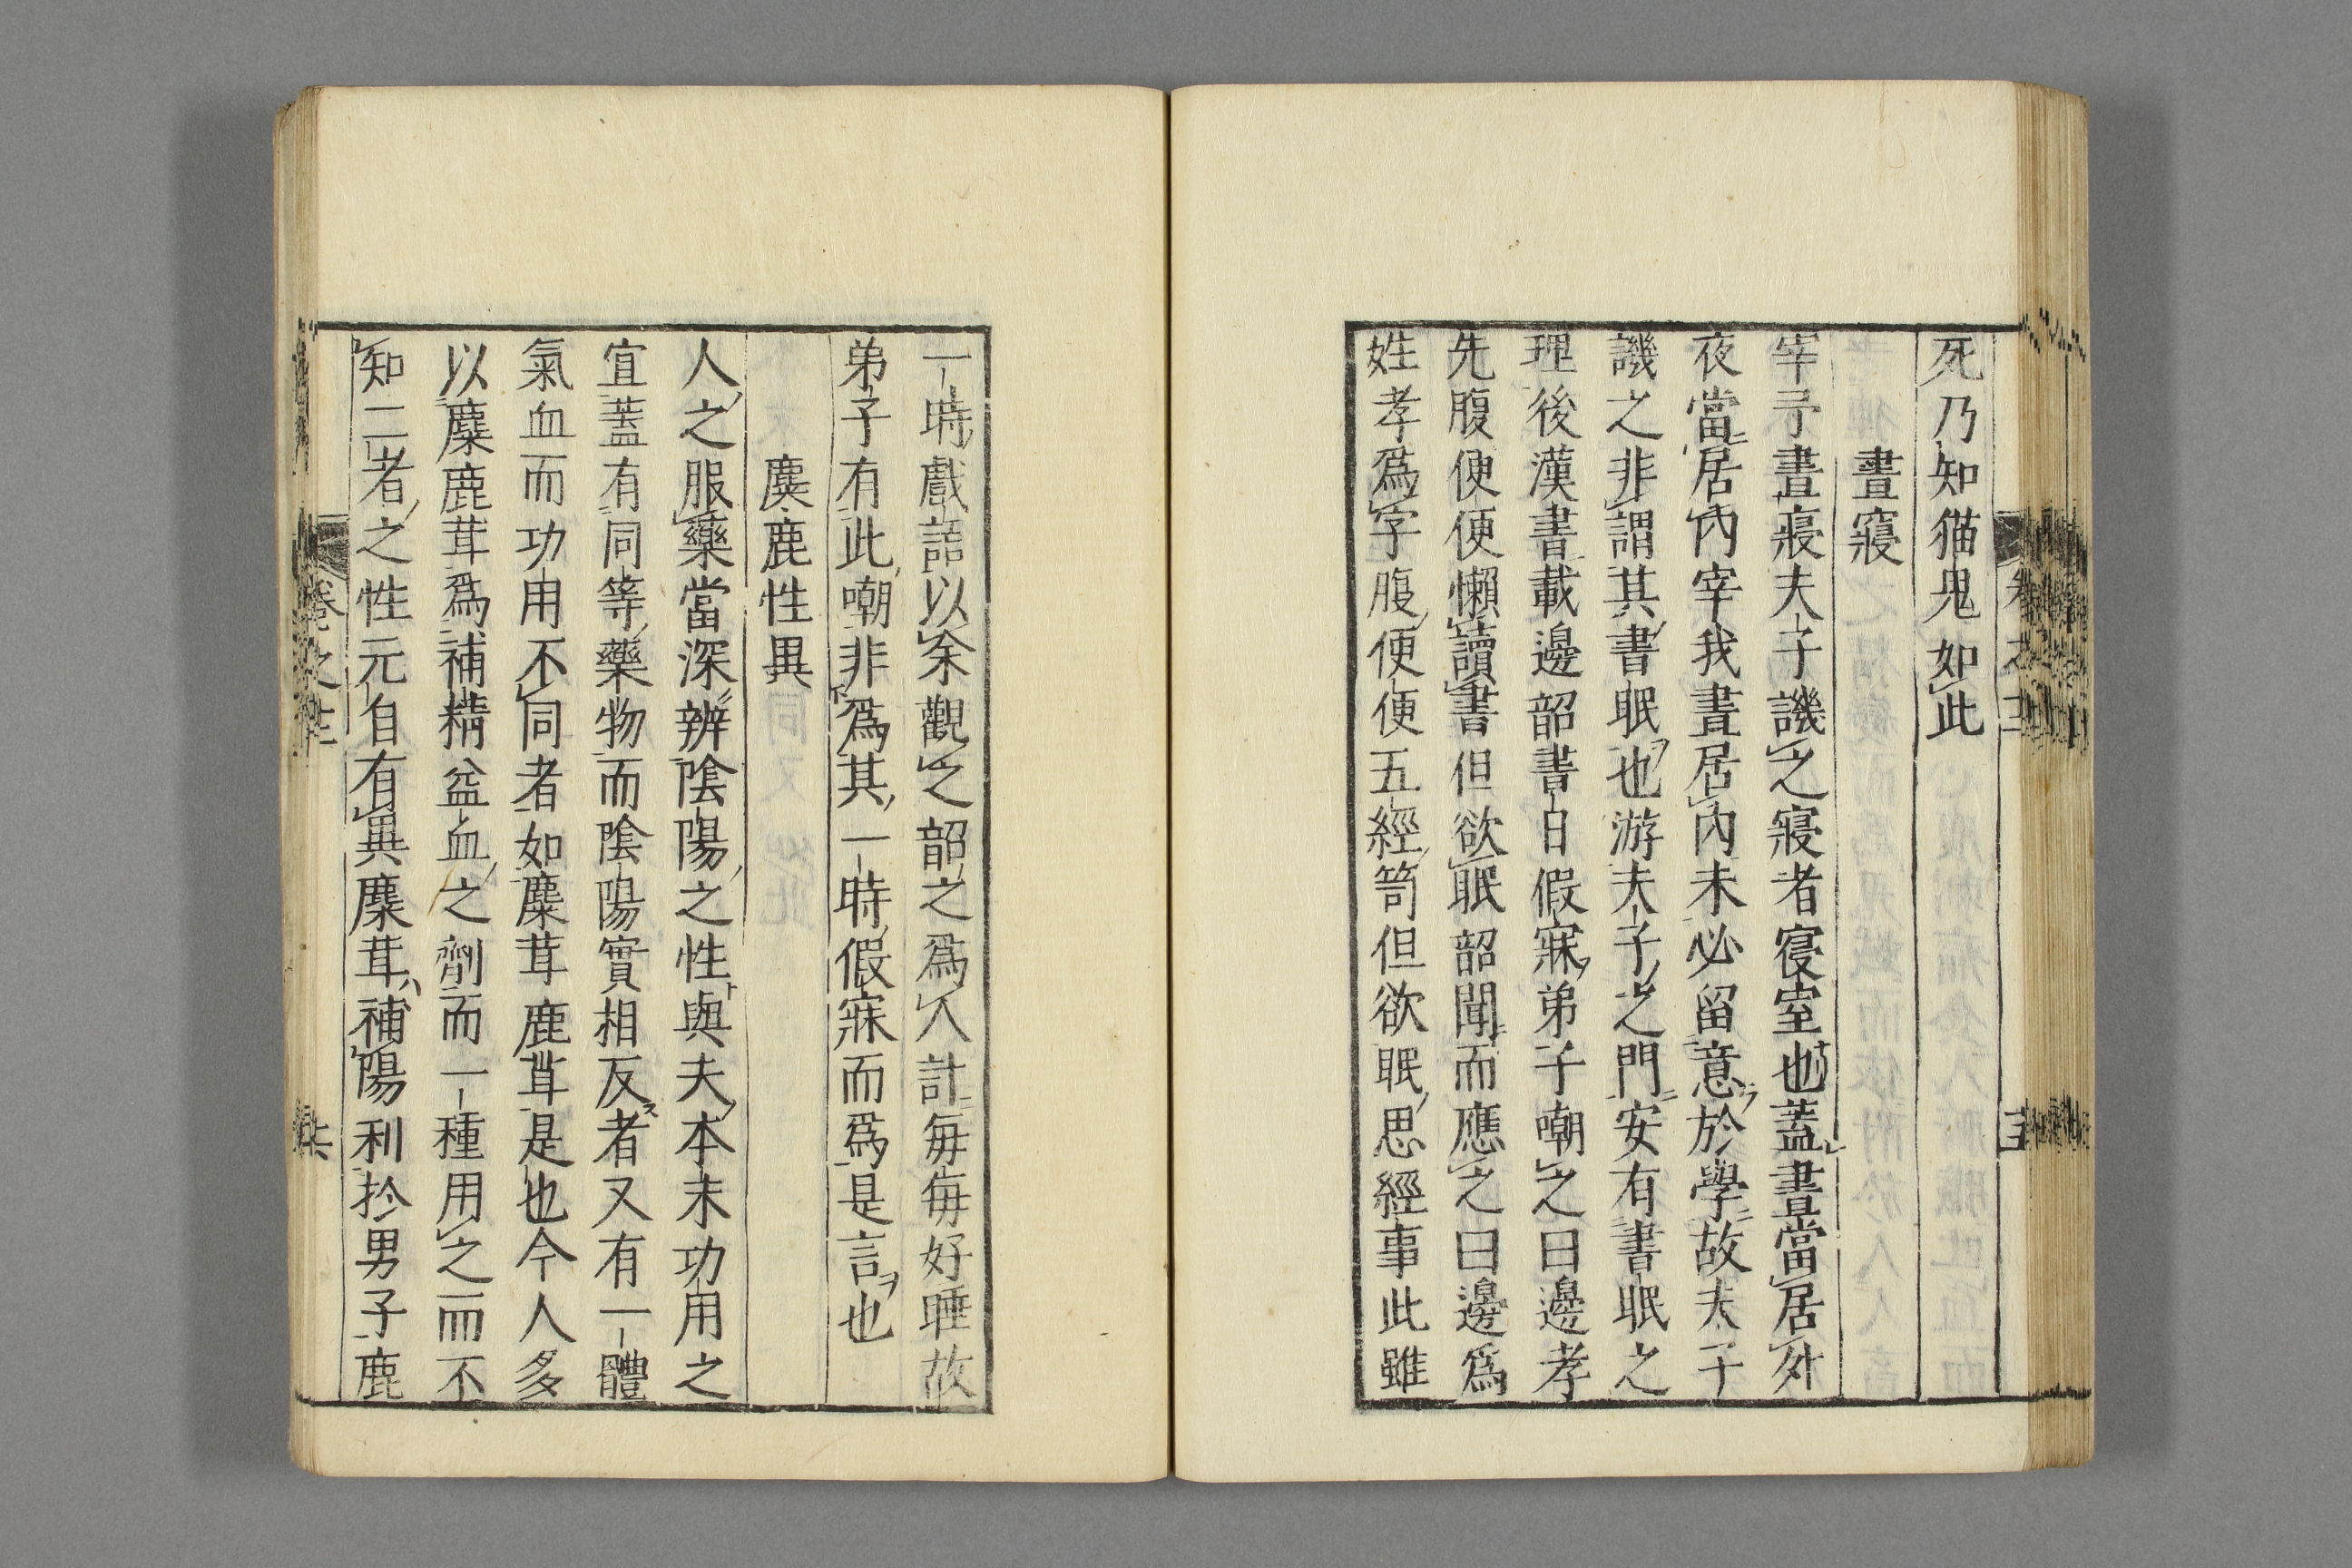 死乃知猫鬼如此
晝寢
宰予晝寢夫子譏之寢者寢室也蓋晝當居外
夜當居內宰我晝居內未必留意於學故夫子
譏之非謂其晝眠也游夫子之門安有晝眠之
理後漢書載邊韶晝日假寐弟子嘲之曰邊孝
先腹便便懶讀書但欲眠韶聞而應之曰邊為
姓孝爲字腹便便五經笥但欲眠思經事此雖
一時戲語以余觀之韶之爲人計毎毎好睡故
弟子有此嘲非爲其一時假寐而爲是言ヲ也
麋鹿性異
人之服藥當深辨陰陽之性與夫本末功用之
宜蓋有同等藥物而陰陽實相反者又有一體
氣血而功用不同者如麋茸鹿茸是也今人多
以麋鹿茸爲補精益血之劑而一種用之而不
知二者之性元自有異麋茸補陽利扵男子鹿
卷之三